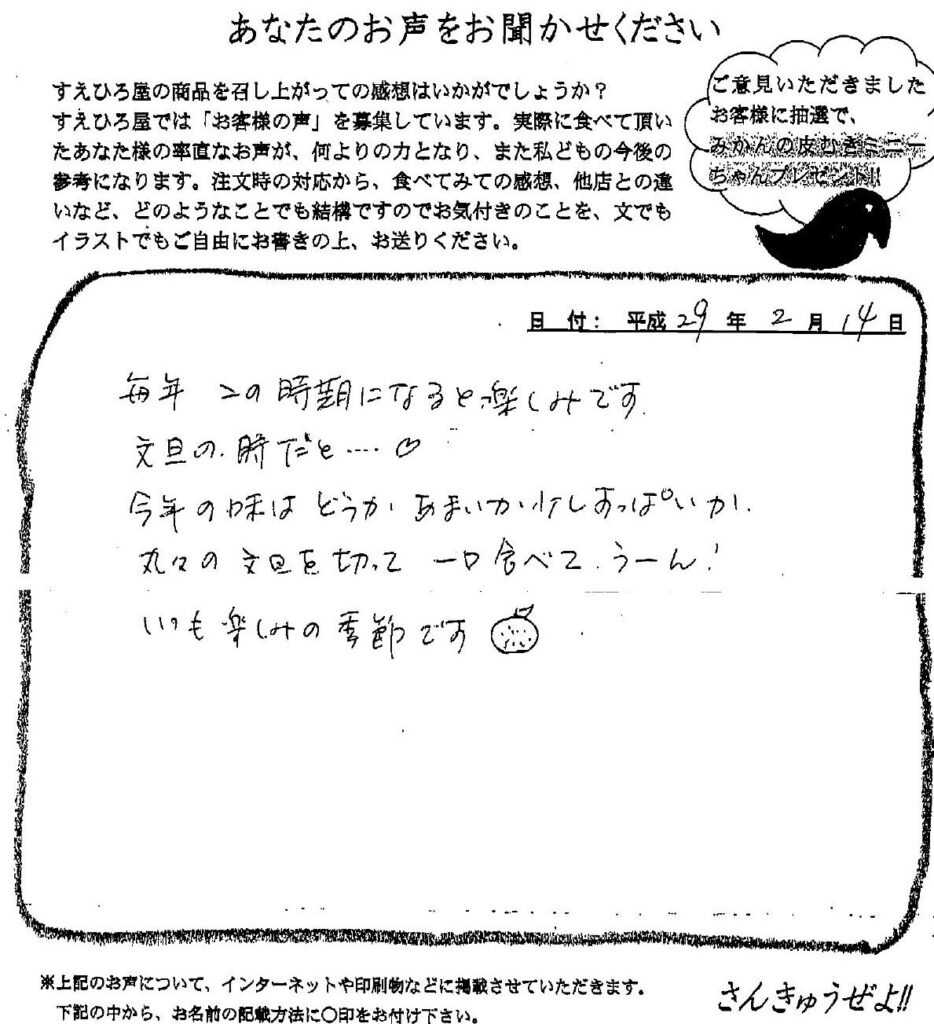 あなたのお声をお聞かせください
すえひろ屋の商品を召し上がっての感想はいかがでしょうか？
すえひろ屋では「お客様の声」を募集しています。実際に食べて頂い
たあなた様の率直なお声が、何よりの力となり、また私どもの今後の
参考になります。注文時の対応から、食べてみての感想、他店との違
いなど、どのようなことでも結構ですのでお気付きのことを、文でも
イラストでもご自由にお書きの上、お送りください。
ご意見いただきました
お客様に抽選で、
みかんの皮むきミニー
ちゃんプレゼント!!
日　付：　平成 29 年 2 月 14 日
毎年 この時期になると楽しみです
文旦の時だと....♡
今年の味は どうか あまいか 少しすっぱいか、
丸々の文旦を切って 一口食べて、うーん!
いつも楽しみの季節です
※上記のお声について、インターネットや印刷物などに掲載させていただきます。
下記の中から、お名前の記載方法に○印をお付け下さい。
さんきゅうぜよ!!